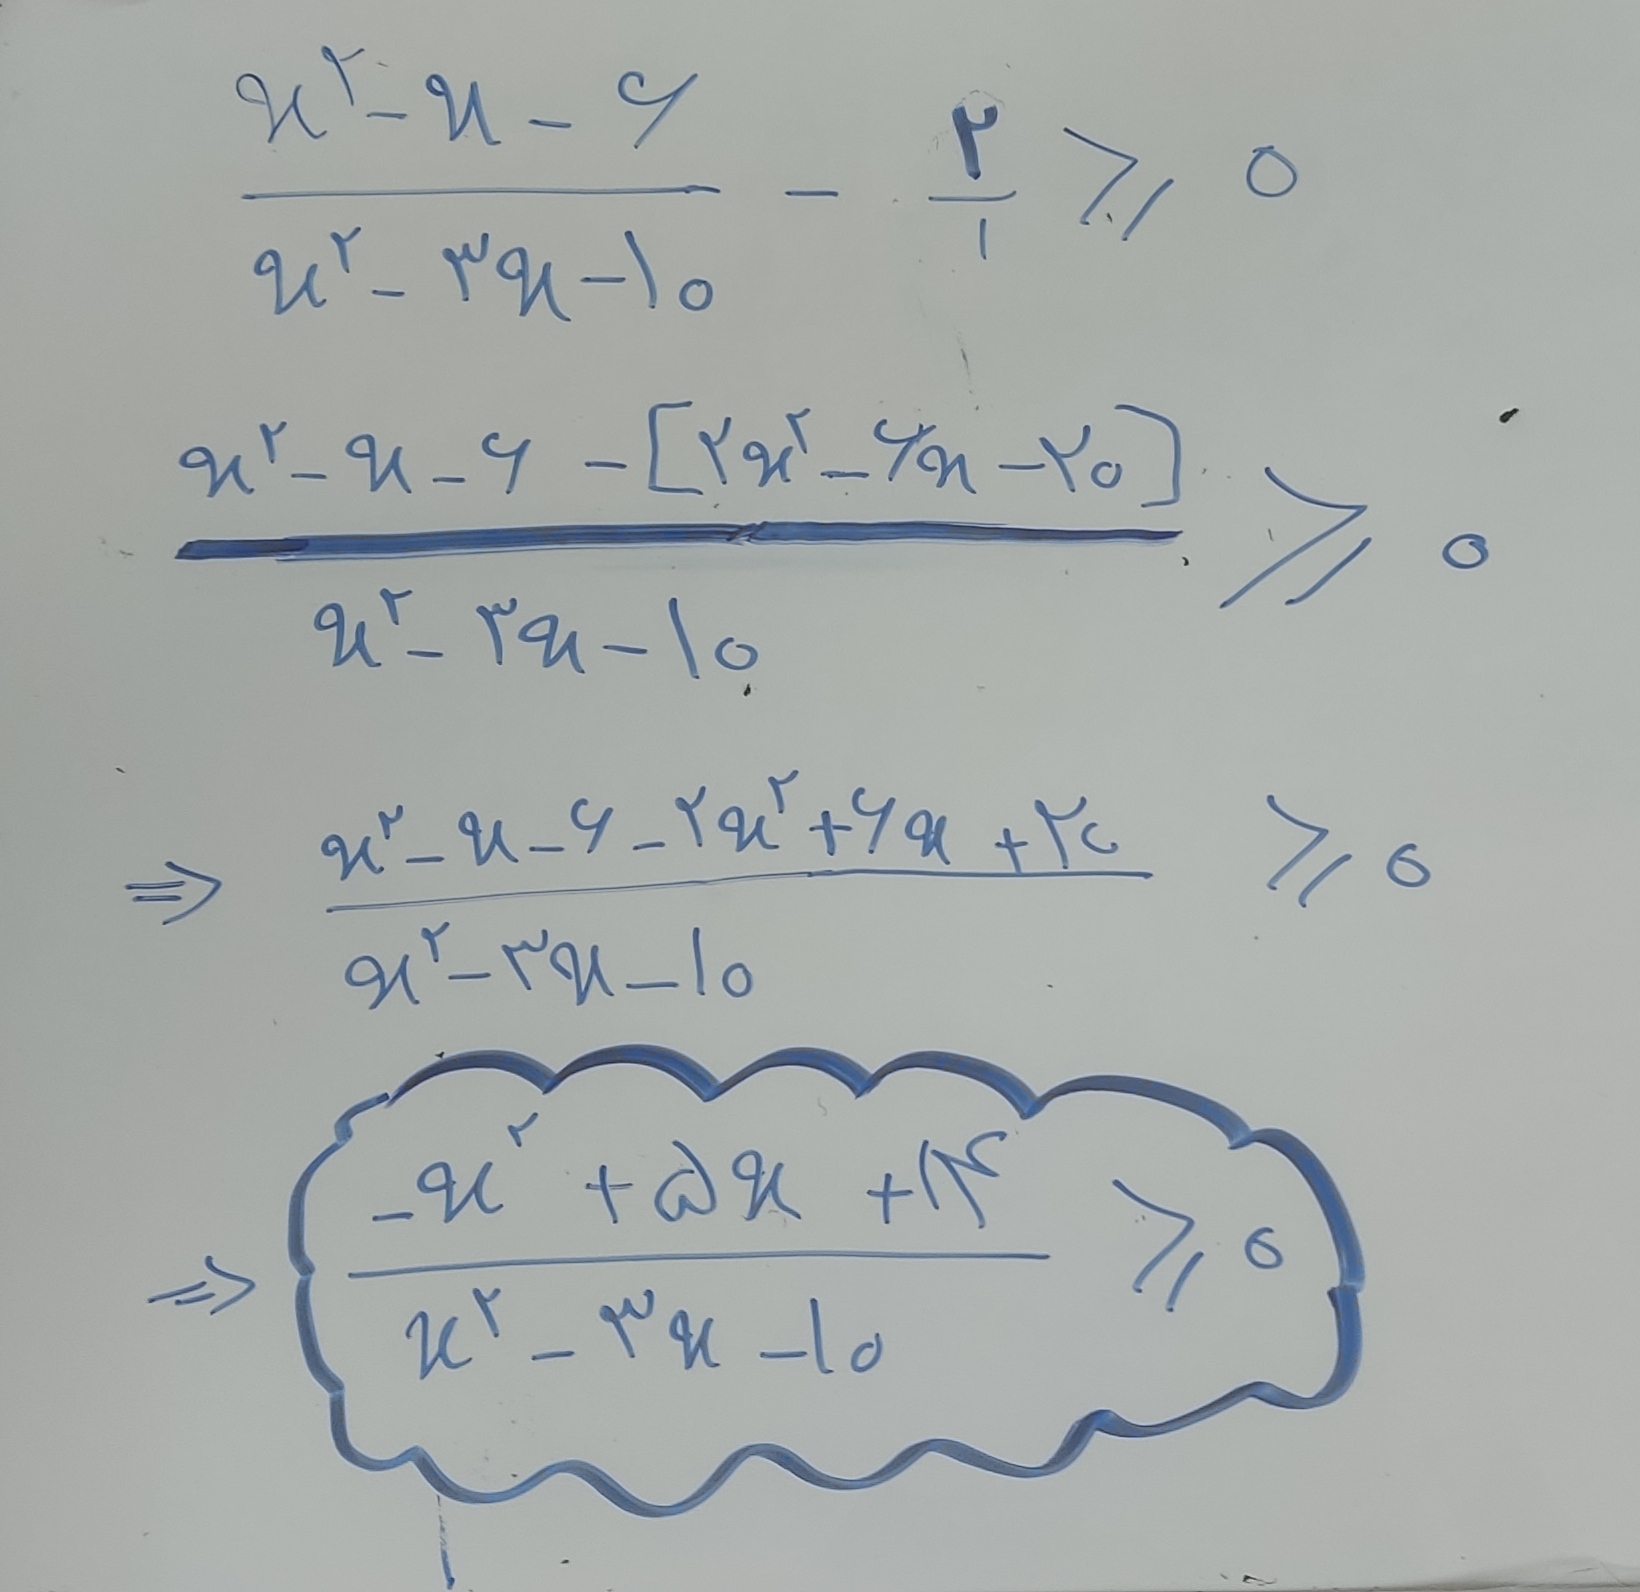 (x² - x - ۶)/(x² - ۳x - ۱۰) - ۲/۱ ≥ ۰
(x² - x - ۶ - [۲x² - ۶x - ۲۰])/(x² - ۳x - ۱۰) ≥ ۰
⇒ (x² - x - ۶ - ۲x² + ۶x + ۲۰)/(x² - ۳x - ۱۰) ≥ ۰
⇒ (-x² + ۵x + ۱۴)/(x² - ۳x - ۱۰) ≥ ۰